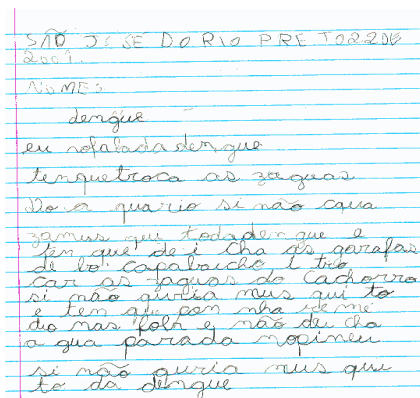 SÃO JOSE DO RIO PRETO 22 DE
2001.
NOMES
dengue
eu nofalada dengue
tenque troca as zaguas
Do a quario si não cqua
zamus qui toda den que e
ten que de i cha as garafas
de bo capabaicho i tro
car as jaguas do cachorro
si não quria mus qui to
e tem qi pon nha reme
dio nas folh e não dei cha
a gua parada nopineu
si não quria mus qui
to da dengue